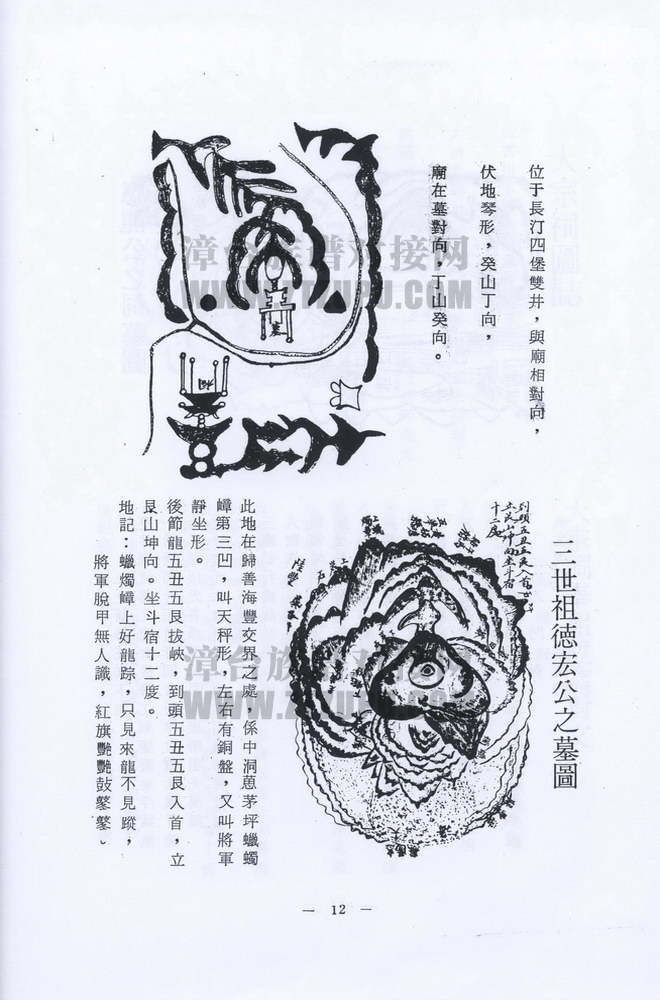 位于長汀四堡雙井，與廟相對向，
伏地琴形，癸山丁向，
廟在墓對向，丁山癸向。
墓
祠
三世祖德宏公之墓圖
到頭五丑五艮入首立
艮山坤向坐斗宿
十二度
此地在歸善海豐交界之處，係中洞蒽茅坪蠟蠋
嶂第三凹，叫天秤形，左右有銅盤，又叫將軍
靜坐形。
後節龍五丑五艮拔峽，到頭五丑五艮入首，立
艮山坤向。坐斗宿十二度。
地記：蠟燭嶂上好龍踪，只見來龍不見蹤，
將軍脫甲無人識，紅旗艷艷鼓鼕鼕。
— 12 —
漳台族谱对接网
WWW.ZTZUPU.COM
漳台族谱对接网
WWW.ZTZUPU.COM